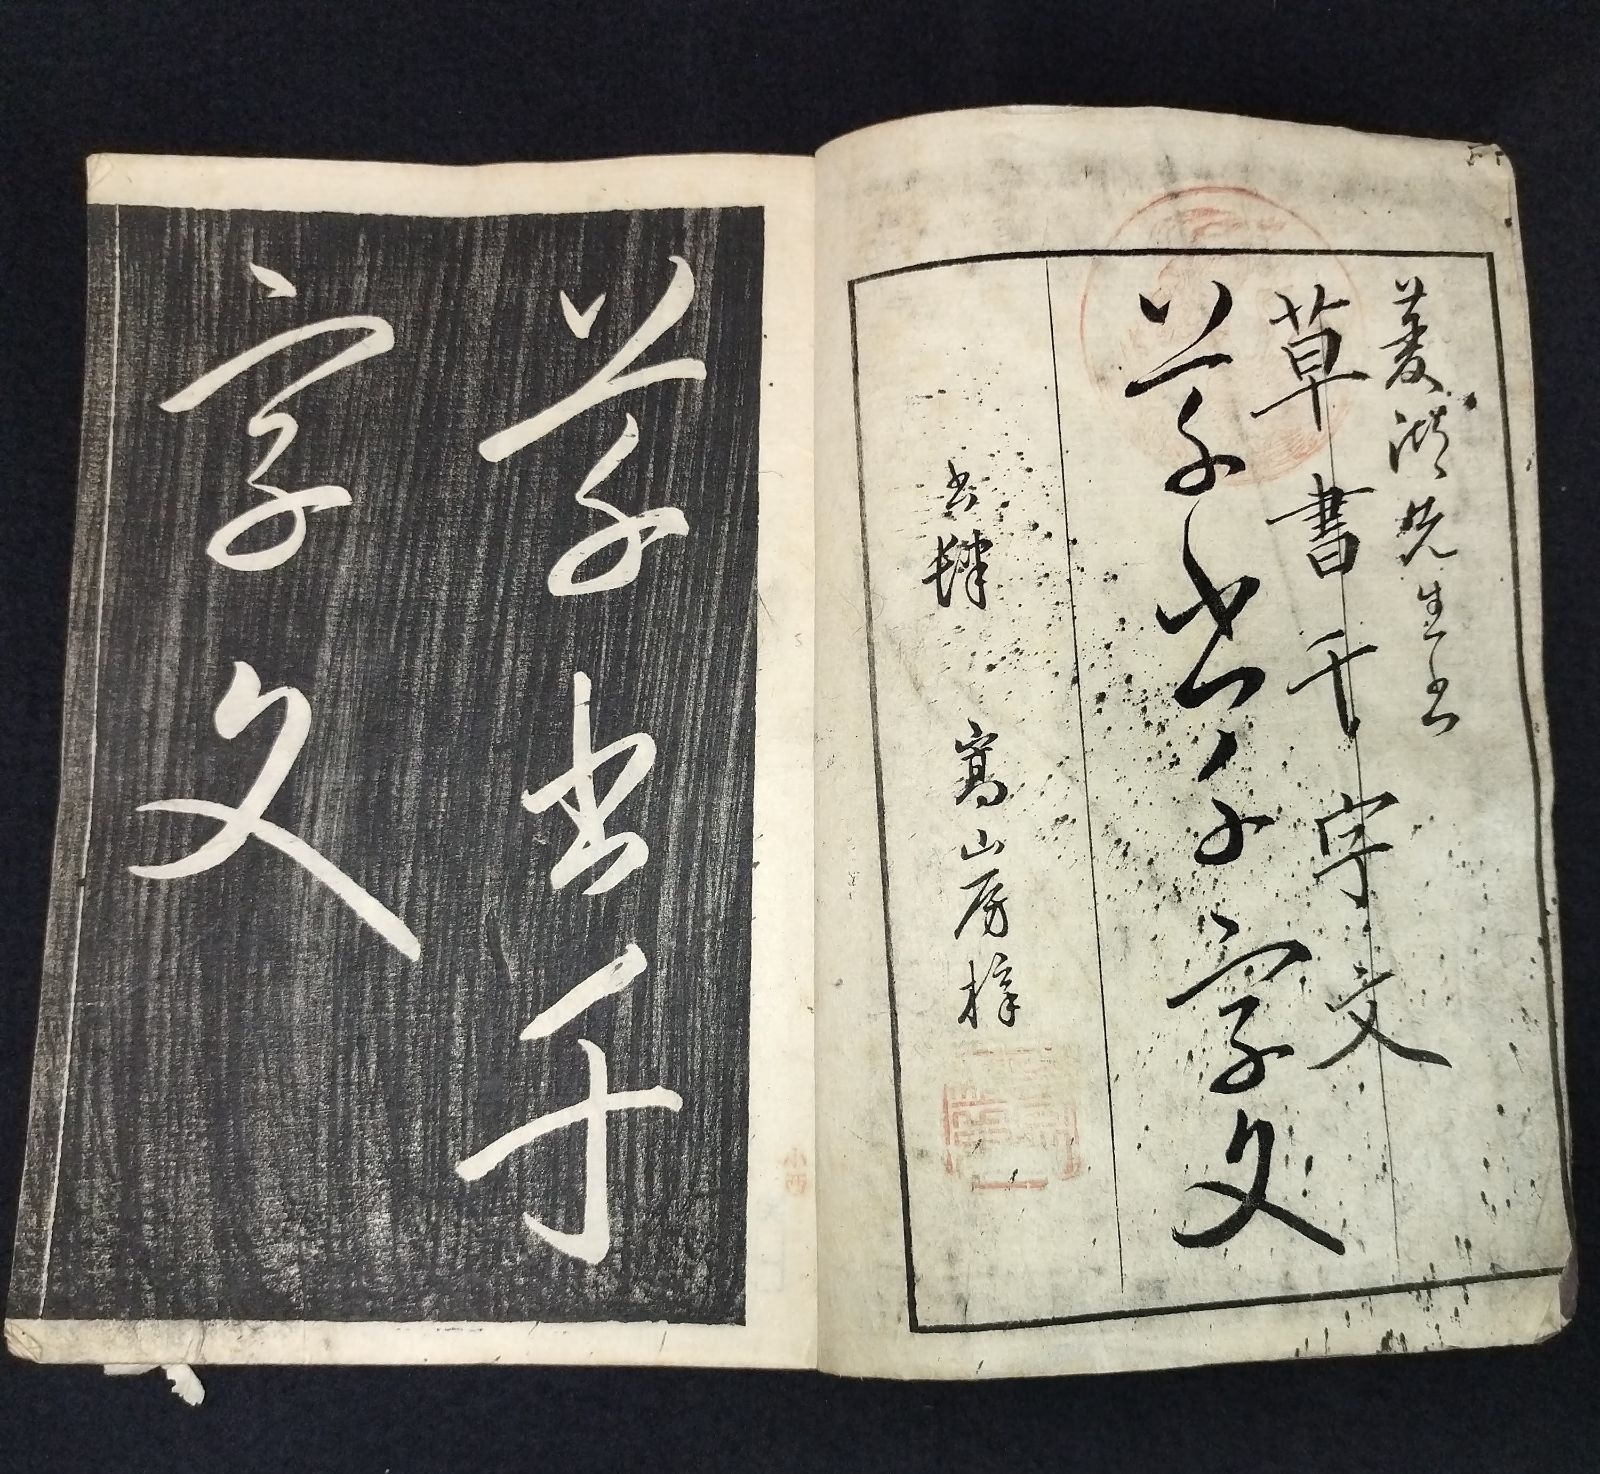 菱湖先生書
草書千字文
草書千字文
書肆 萬山房梓
草書千
字文
小西